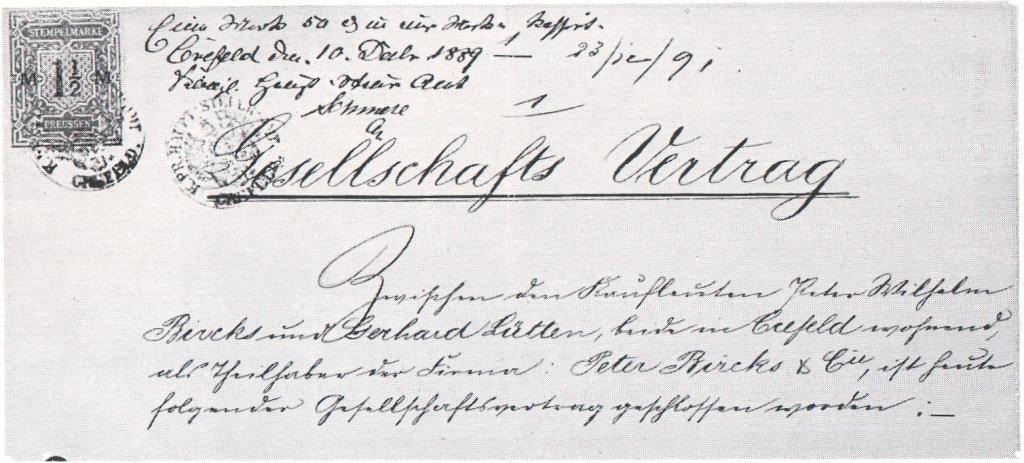 STEMPELMARKE
M 1½ M
PREUSSEN
CREFELD.
Eine Mark 50 in einer Marke
Crefeld den 10. Dcbr 1889 — 1
Haupt Steuer Amt
1
Gesellschafts Vertrag
Zwischen den Kaufleuten Peter Wilhelm
Bircks und Gerhard Lütten, beide in Crefeld wohnend,
als Theilhaber der Firma: Peter Bircks & Cie, ist heute
folgender Gesellschaftsvertrag geschlossen worden :—